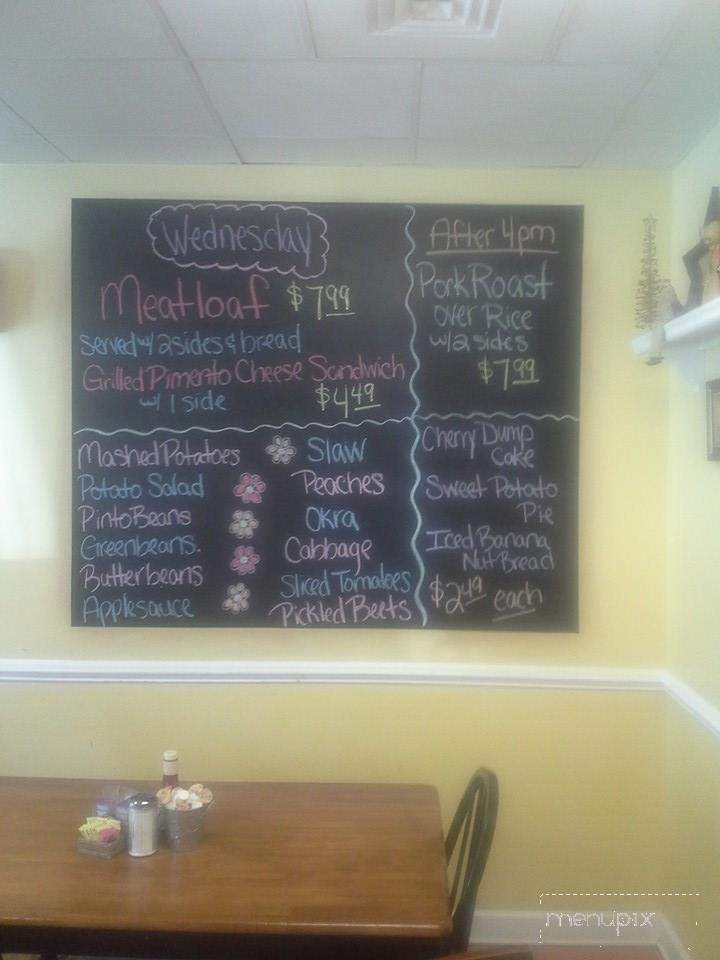 Wednesday
Meatloaf $7.99
served w/ 2 sides & bread
Grilled Pimento Cheese Sandwich
w/ 1 side $4.49
After 4pm
Pork Roast
over Rice
w/ 2 sides
$7.99
Mashed Potatoes Slaw
Potato Salad Peaches
Pinto Beans Okra
Greenbeans. Cabbage
Butterbeans Sliced Tomatoes
Applesauce Pickled Beets
Cherry Dump
Cake
Sweet Potato
Pie
Iced Banana
Nut Bread
$2.49 each
menupix